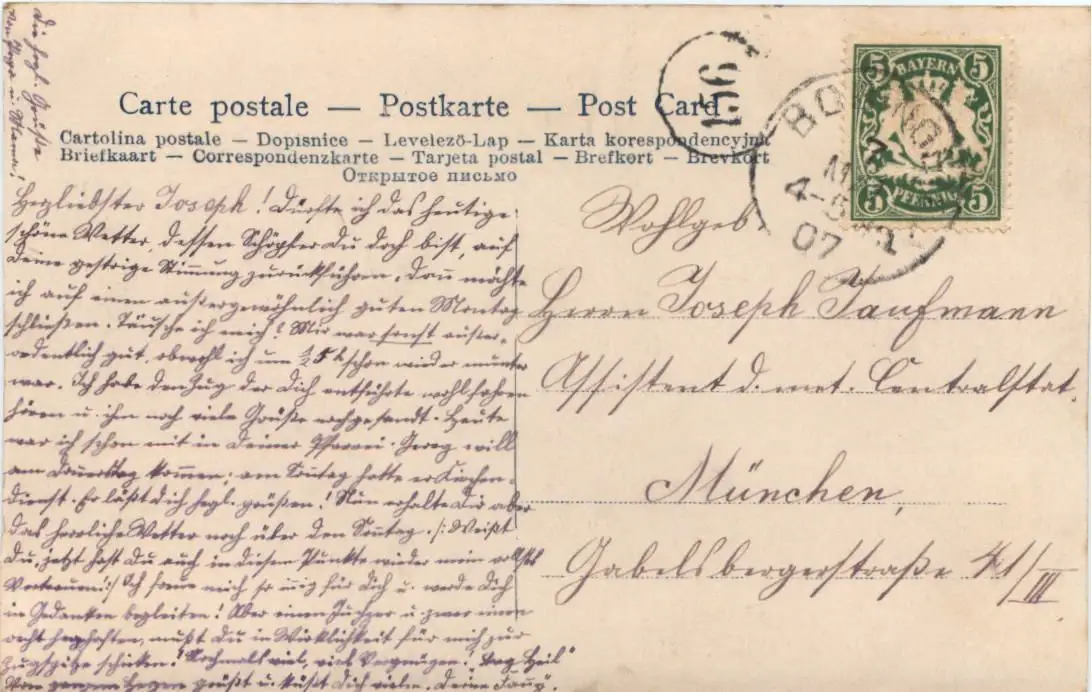 Carte postale — Postkarte — Post Card
Cartolina postale — Dopisnice — Levelező-Lap — Karta korespondencyjna
Briefkaart — Correspondenzkarte — Tarjeta postal — Brefkort — Brevkort
Открытое письмо
156
BAYERN
5 5
5 PFENNIG 5
7
4-5
07
Die hzgl. Grüße
von u. Mama!
Herzliebster Joseph! Dürfte ich das heutige
schöne Wetter, dessen Schöpfer Du doch bist, auf
Deine gestrige Stimmung zurückführen, dann möchte
ich auf einen außergewöhnlich guten Montag
schließen. Täusche ich mich? Mir war sonst außer-
ordentlich gut, obwohl ich um ½5 h schon wieder munter
war. Ich habe den Zug der Dich entführte wohl fahren
hören u. ihm noch viele Grüße nachgesandt. Heute
war ich schon mit in Deiner Pfarrei. Georg will
am Donnerstag kommen; am Sonntag hatte er Kirchen-
dienst. Er läßt Dich hzgl. grüßen! Nun erhalte Dir aber
das herrliche Wetter noch über den Sonntag. /: Weißt
Du, jetzt hast Du auch in diesem Punkte wieder mein vollstes
Vertrauen! :/ Ich freue mich so innig für Dich u. werde Dich
in Gedanken begleiten! Aber einen Juchzer u. zwar einen
recht herzhaften, mußt Du in Wirklichkeit für mich zur
Zugspitze schicken! Nochmals viel, viel Vergnügen! "Berg Heil"
Von ganzem Herzen grüßt u. küßt Dich vielm. Deine Fanny.
Wohlgeb
Herrn Joseph Kaufmann
Assistent d. met. Centralstat.
München,
Gabelsbergerstraße 41/III